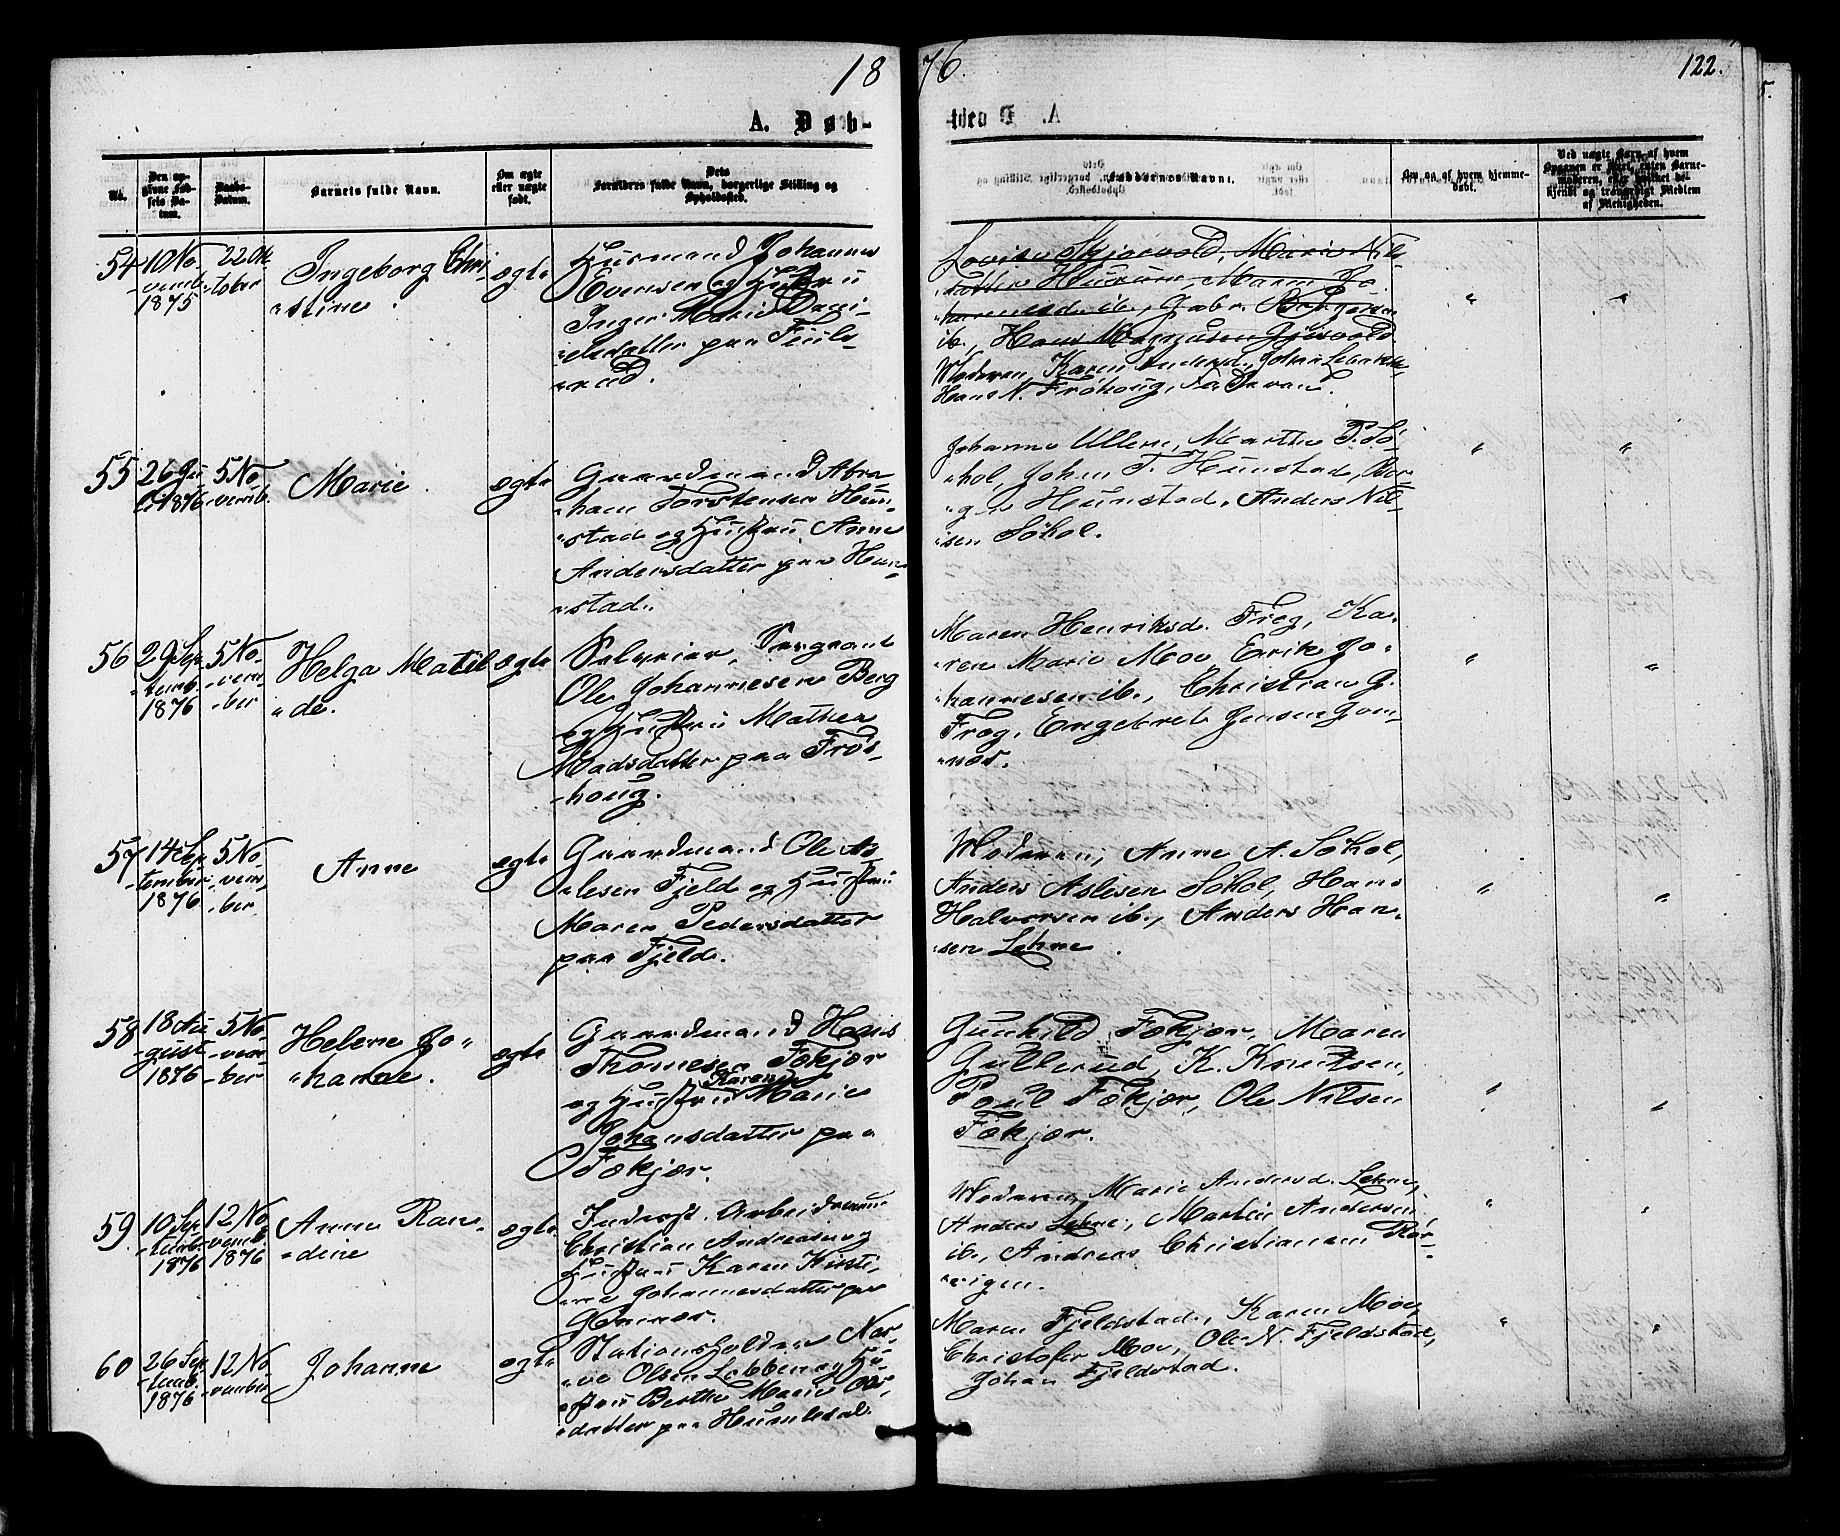 1876.
122.
A. Døb-
No.
Den op-
givne Fød-
sels Da-
tum.
Daabs-
Datum.
Barnets fulde Navn.
Om ægte
eller uægte
født.
Dets
Forældres fulde Navn, borgerlige Stilling og
Opholdssted.
Faddernes Navne.
Om og af hvem hjemme-
døbt.
Ved uægte Børn af hvem
Opgaven er skeet, enten Barne-
moderen, eller hvilket be-
kjendt og troværdigt Medlem
af Menigheden.
54
10 No-
vemb.
1875
22 Ok-
tober
Ingeborg Chri-
stine.
ægte
Huusmand Johannes
Evensen og Hustru
Inger Marie Dani-
elsdatter paa
rud.
Lovise Skjørvold, Marie Nils-
datter Huurum, Maren Jo-
hannesd. ib., Gabr.
ib., Hans Magnusen
Moderen, Karen Andersd., Johan
Hans N. Frøhoug,
"
"
55
26 Ju-
li 1876
5 No-
vemb.
Marie
ægte
Gaardmand Abra-
ham Torstensen Hun-
stad og Hustru Anne
Andersdatter paa Hun-
stad.
Johanne Ullern, Marthe P. Sø-
hol, Johan T. Hunstad, Bør-
ge Hunstad, Anders Nil-
sen Søhol.
"
"
56
29 Sep-
temb.
1876
5 No-
vem-
ber
Helga Matil-
de.
ægte
Selveier, Sergeant
Ole Johannesen Berg
og Hustru Mathea
Madsdatter paa Frøs-
houg.
Maren Henriksd. Frog, Ka-
ren Marie Moe, Erik Jo-
hannesen ib., Christian G.
Frog, Engebret Jensen Gom-
næs.
"
"
57
14 Sep-
tember
1876
5 No-
vem-
ber
Anne
ægte
Gaardmand Ole As-
lesen Fjeld og Hustru
Maren Pedersdatter
paa Fjeld.
Moderen, Anne A. Søhol,
Anders Aslesen Søhol, Hans
Halvorsen ib., Anders Han-
sen Lehne.
"
"
58
18 Au-
gust
1876
5 No-
vem-
ber
Helene Jo-
hanne.
ægte
Gaardmand Hans
Thomesen Fækjær
og Hustru Karen Marie
Johansdatter paa
Fækjær.
Gunhild Fækjær, Maren
Gulderud, K. Knutsen,
Poul Fækjær, Ole Nilsen
Fækjær.
"
"
59
10 Sep-
temb.
1876
12 No-
vemb.
1876
Anne Ran-
dine
ægte
Inderst, Arbeidsmand
Christian Andreasen og
Hustru Karen Kirsti-
ne Johannesdatter paa
Gomnæs.
Moderen, Marie Andersd. Lehne,
Anders Lehne, Martin Andersen
ib., Andreas Christiansen Rør-
vigen.
"
"
60
26 Sep-
temb.
1876
12 No-
vember
Johanne
ægte
Stationsholder Nar-
ve Olsen Lobben og Hu-
stru Berthe Marie Ols-
datter paa Humledal.
Maren Fjeldstad, Karen Moe,
Christofer Moe, Ole N. Fjeldstad,
Johan Fjeldstad.
"
"